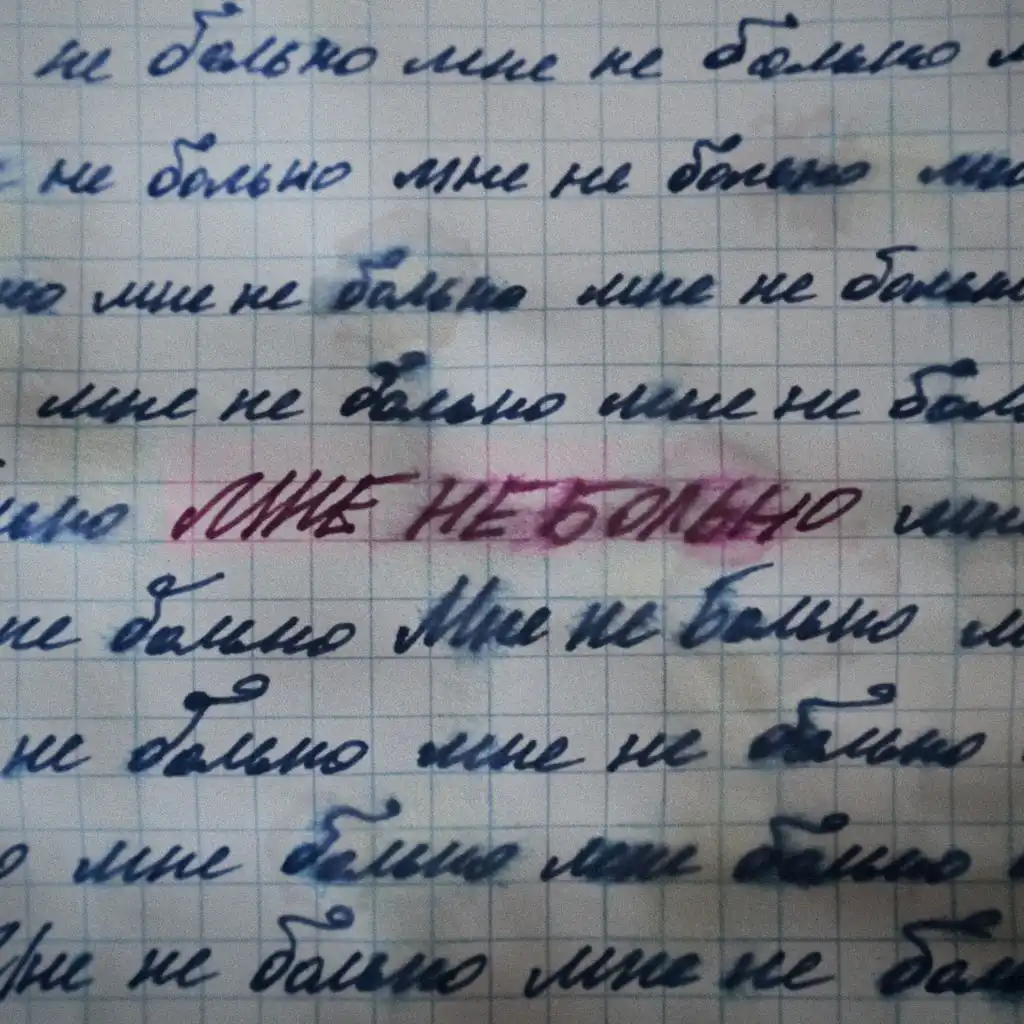 не больно мне не больно м
не больно мне не больно мне
но мне не больно мне не больно
мне не больно мне не боль
льно МНЕ НЕ БОЛЬНО мне
не больно Мне не больно м
не больно мне не больно
о мне больно мне больно
Мне не больно мне не боль